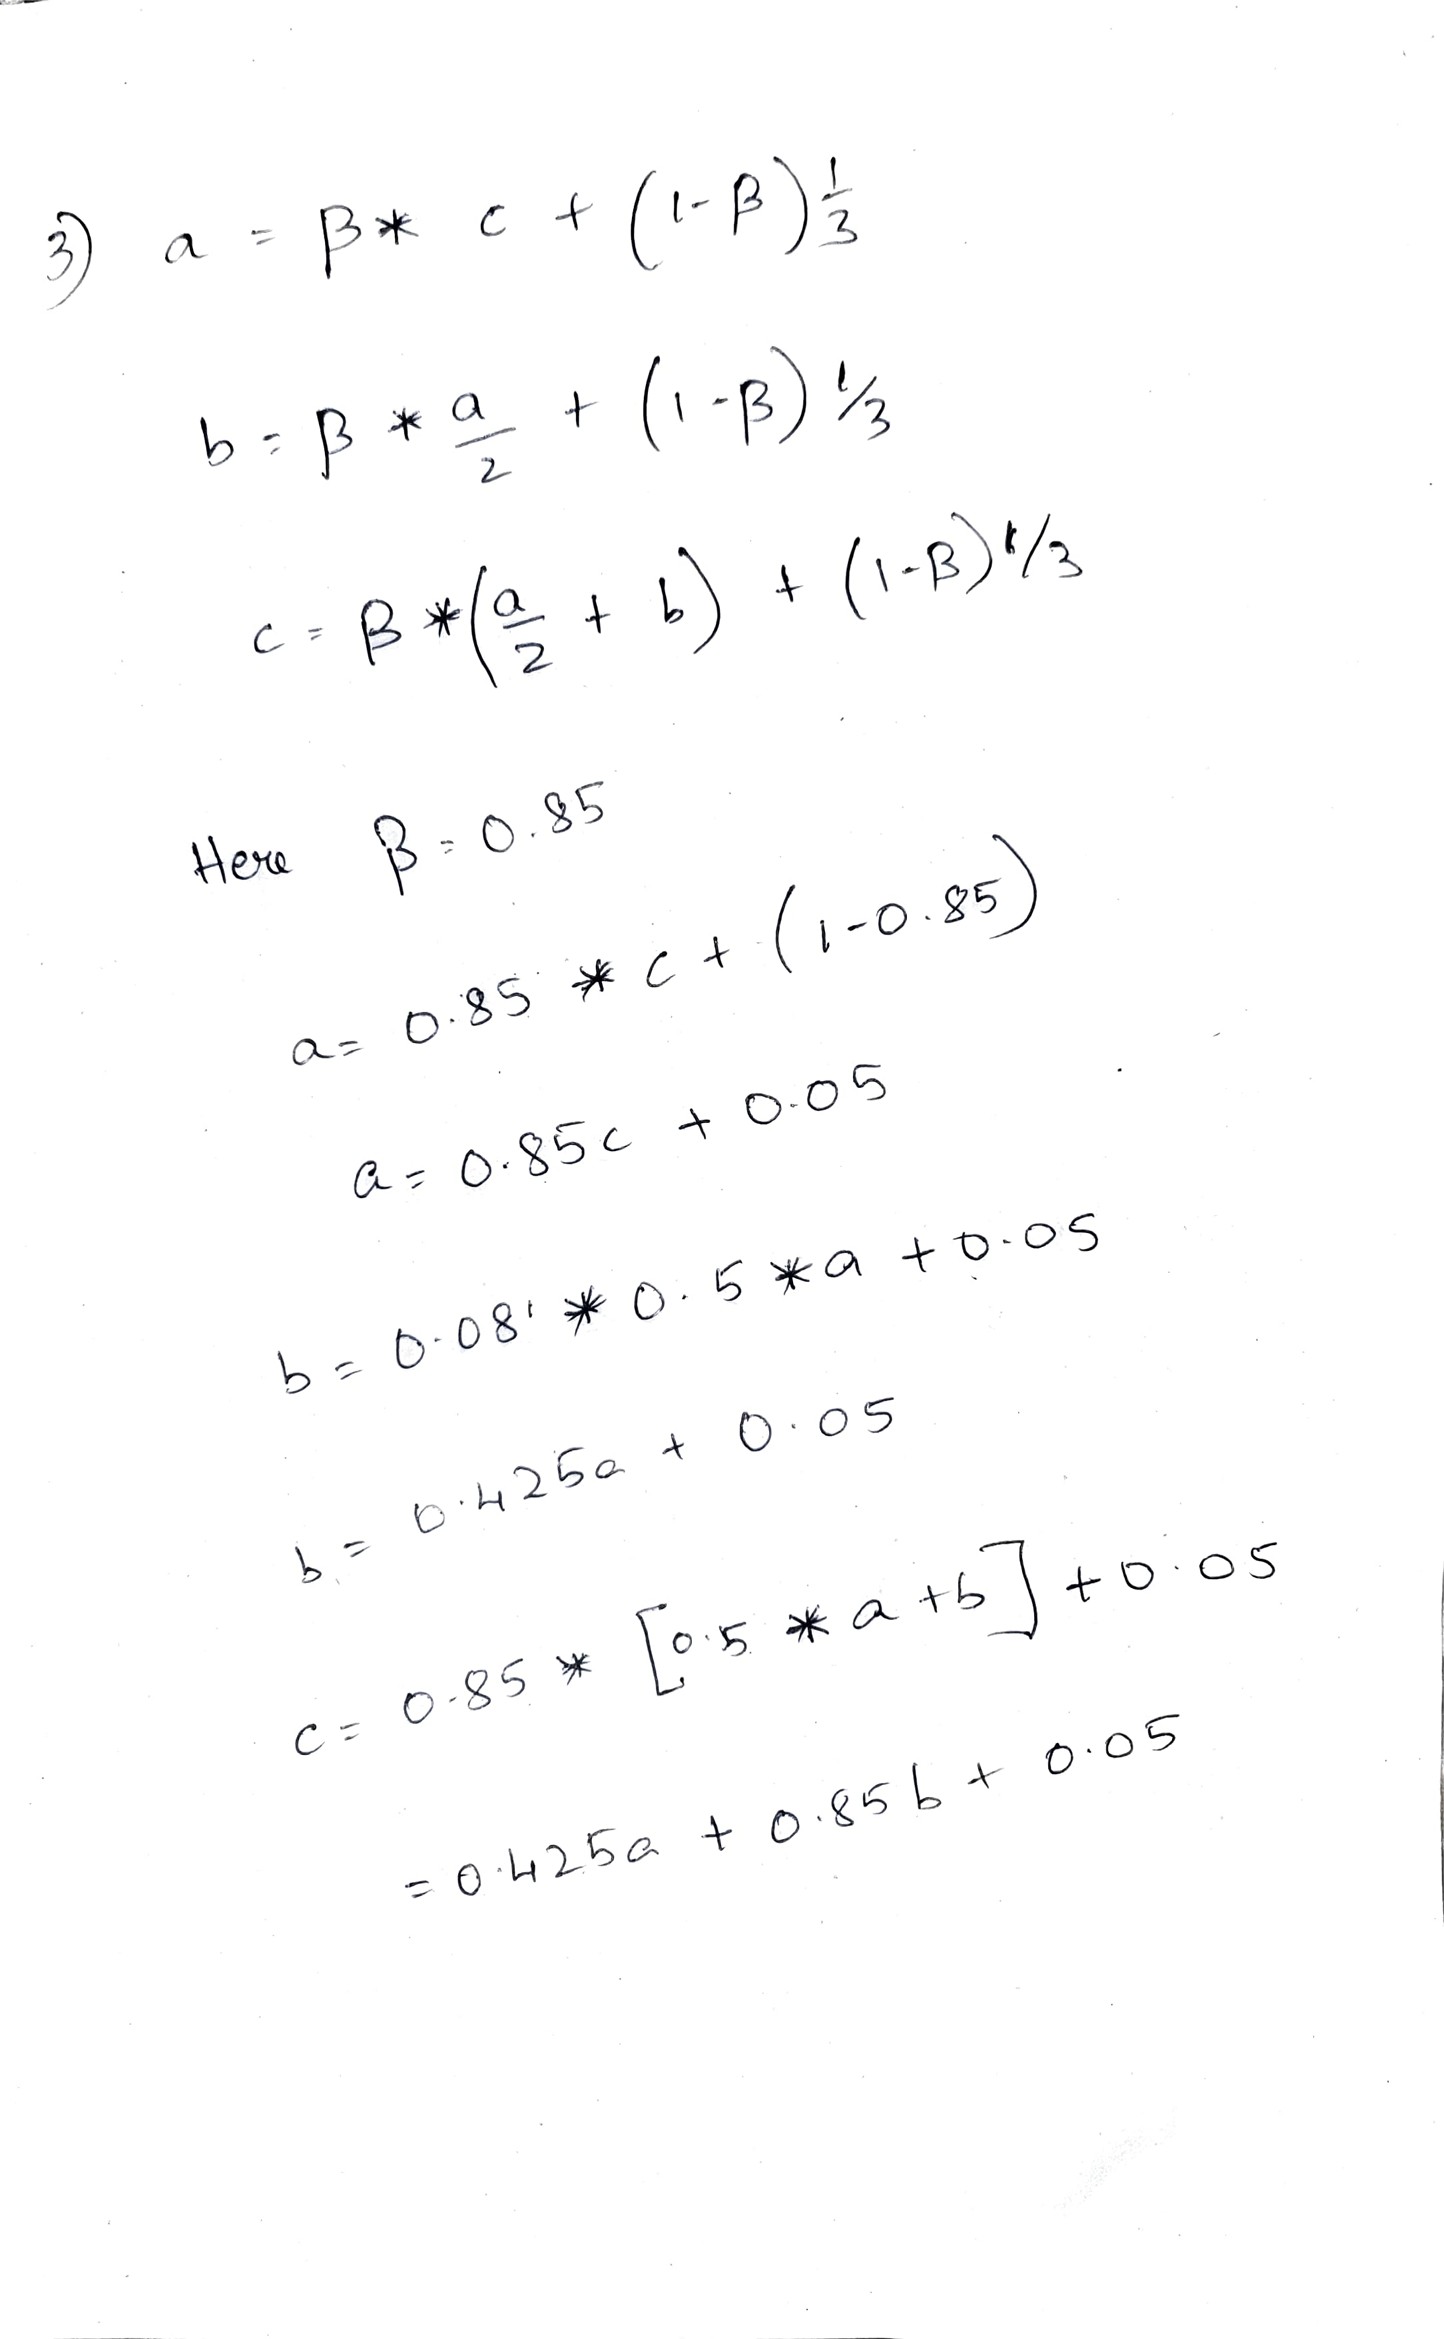 3) a = β * c + (1-β) 1/3
b = β * a/2 + (1-β) 1/3
c = β * (a/2 + b) + (1-β) 1/3
Here β = 0.85
a = 0.85 * c + (1-0.85)
a = 0.85c + 0.05
b = 0.08' * 0.5 * a + 0.05
b = 0.425a + 0.05
c = 0.85 * [0.5 * a + b] + 0.05
= 0.425a + 0.85b + 0.05